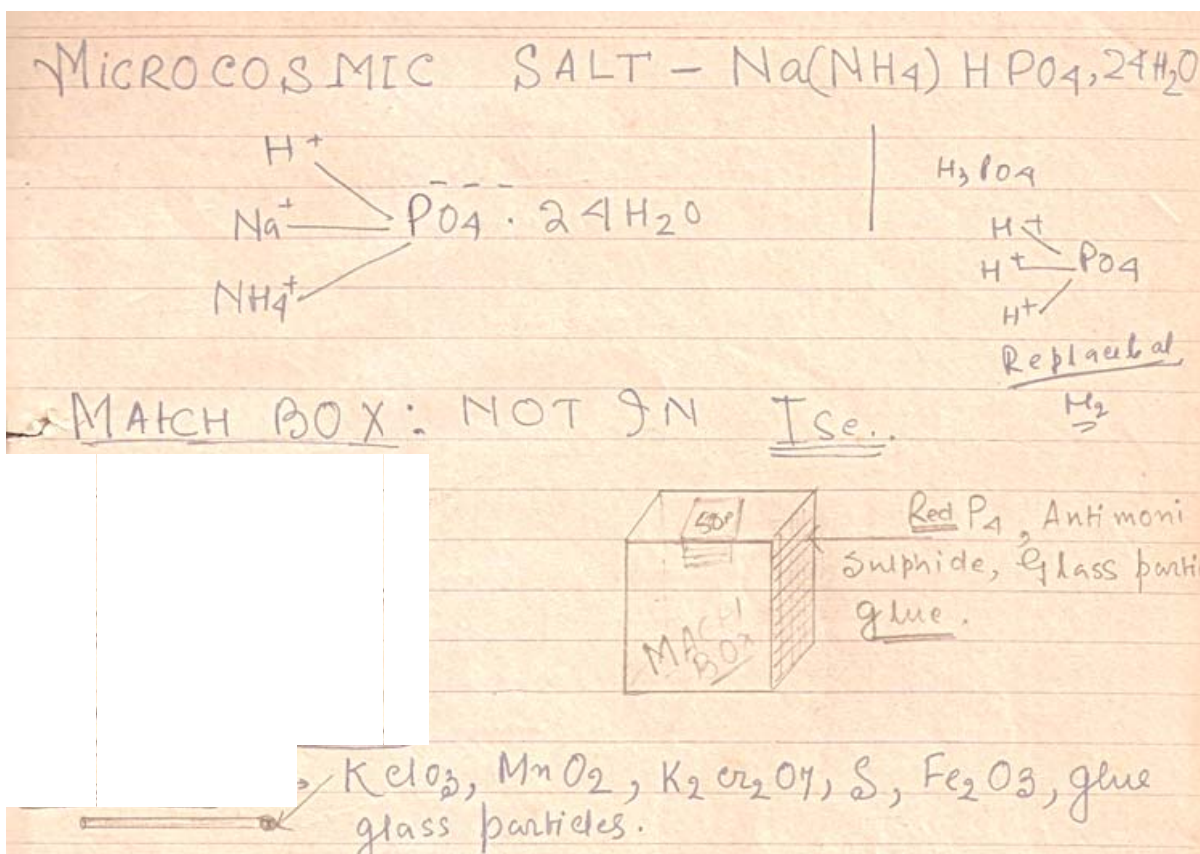 MICROCOSMIC SALT - Na(NH4) HPO4, 24H2O
H+
Na+
NH4+
PO4 - - - . 24H2O
H3PO4
H+
H+
H+
PO4
Replacebal
H2
MATCH BOX: NOT IN Ise..
50P
MACHI
BOX
Red P4, Antimoni
Sulphide, Glass parti
glue.
KClO3, MnO2, K2Cr2O7, S, Fe2O3, glue
glass particles.